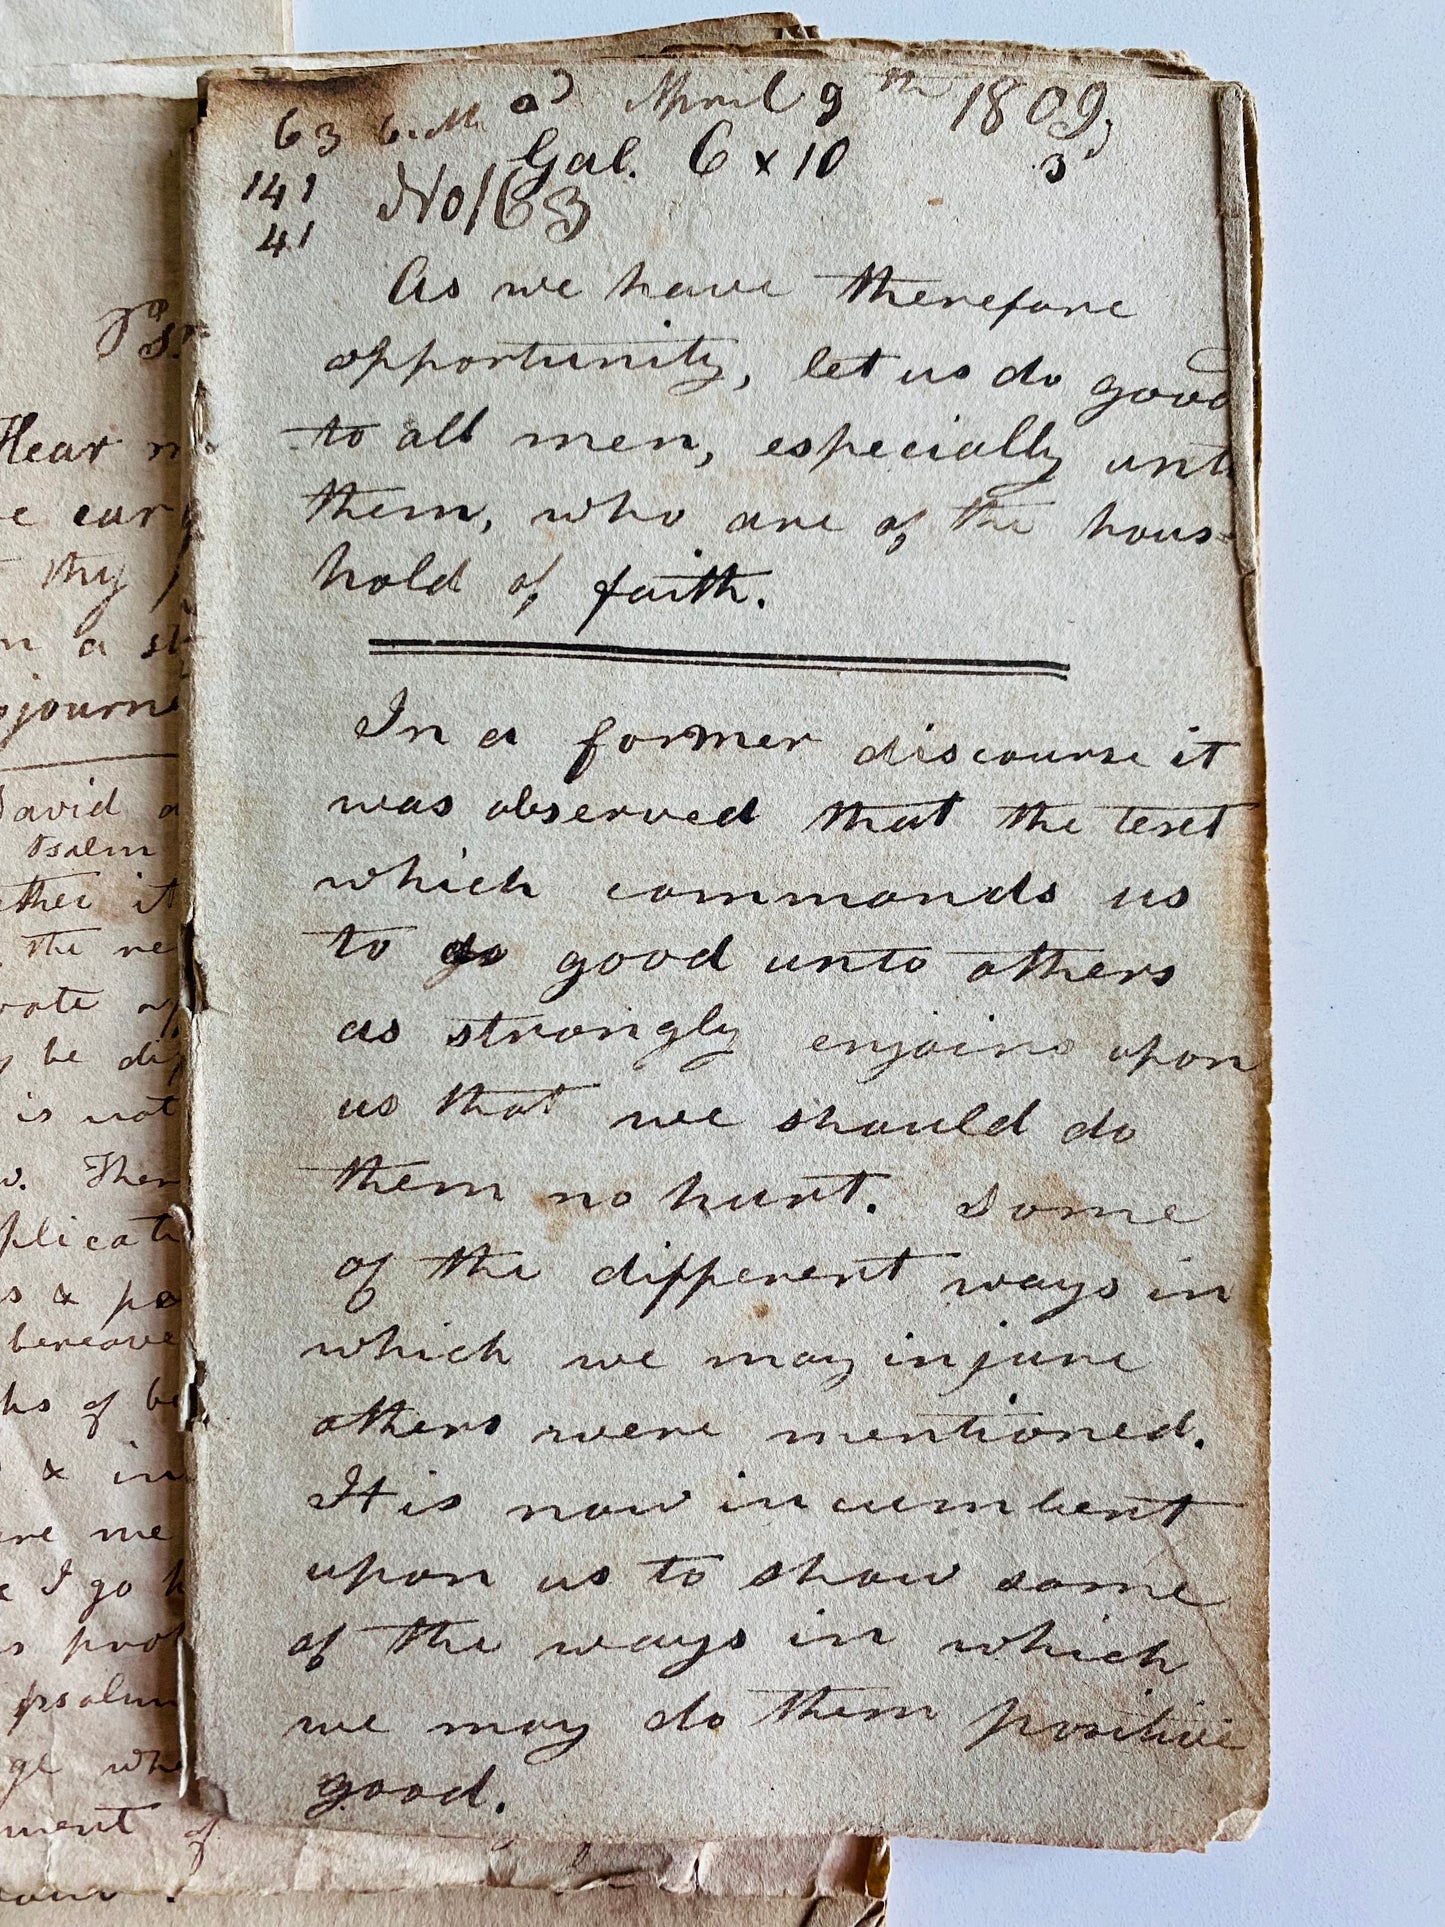 April 9th 1809,
63
Gal. 6 x 10
3
141
No 163
41
As we have therefore
opportunity, let us do good
to all men, especially unto
them, who are of the hous=
hold of faith.
In a former discourse it
was observed that the text
which commands us
to do good unto others
as strongly enjoins upon
us that we should do
them no hurt. Some
of the different ways in
which we may injure
others were mentioned.
It is now incumbent
upon us to show some
of the ways in which
we may do them positive
good.
Hear
ear
thy
in a st
journ
David a
Psalm
it
the re
be
is not
plicat
s & p
bereave
ks of be
& in
are me
I go
psalm
ge whe
ment of